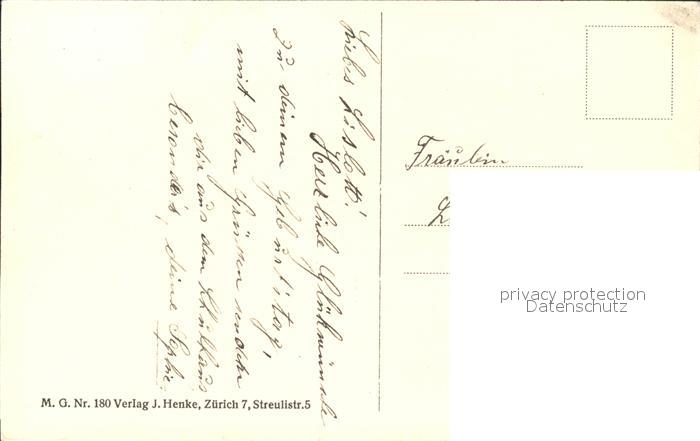 Liebs Lislott!
Herzliche Glückwünsche
zu deinem Geburtstag,
mit lieben Grüssen senden
dir aus dem Schulhaus
besonders, deine Sophie.
Fräulein
L
privacy protection
Datenschutz
M. G. Nr. 180 Verlag J. Henke, Zürich 7, Streulistr. 5